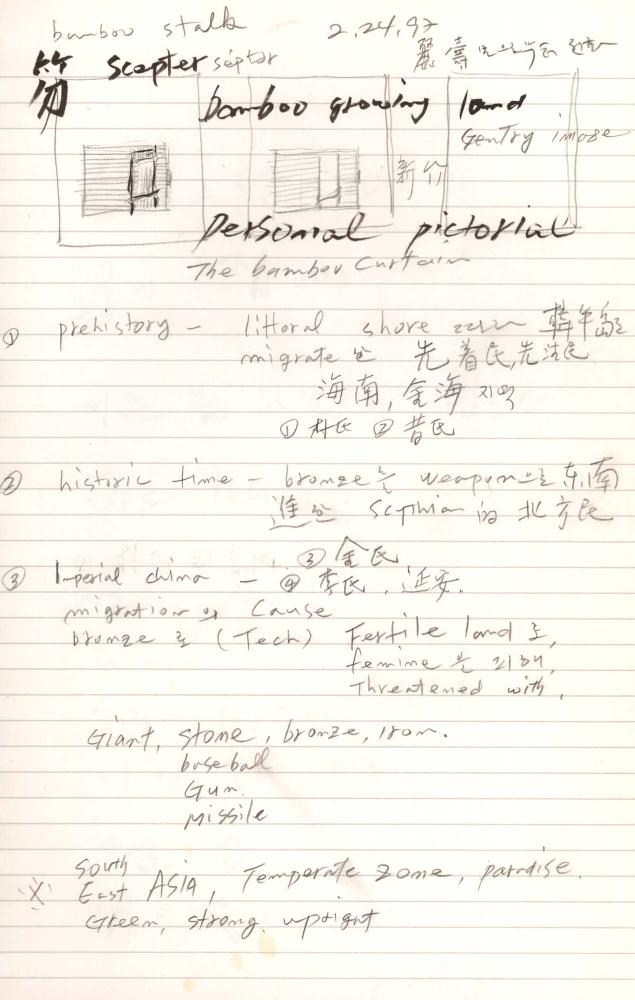 bamboo stalk 2.24.97
笏 scepter séptər
bamboo growing land
Gentry image
新竹
Personal pictorial
The bamboo curtain
① prehistory – littoral shore 韓半島로
migrate 한 先着民, 先活民
海南, 金海 지역
① 朴氏 ② 昔氏
② historic time – bronze를 weapon으로 东南
進한 Scythian 的 北方民
③ 金氏
③ Imperial china – ④ 李氏, 延安.
migration의 Cause
bronze로 (Tech) Fertile land로,
femine 을 피해,
Threatened with,
Giant, stone, bronze, iron.
baseball
Gun.
Missile
South
※ East ASIA, Temperate zone, paradise.
Green, strong, upright